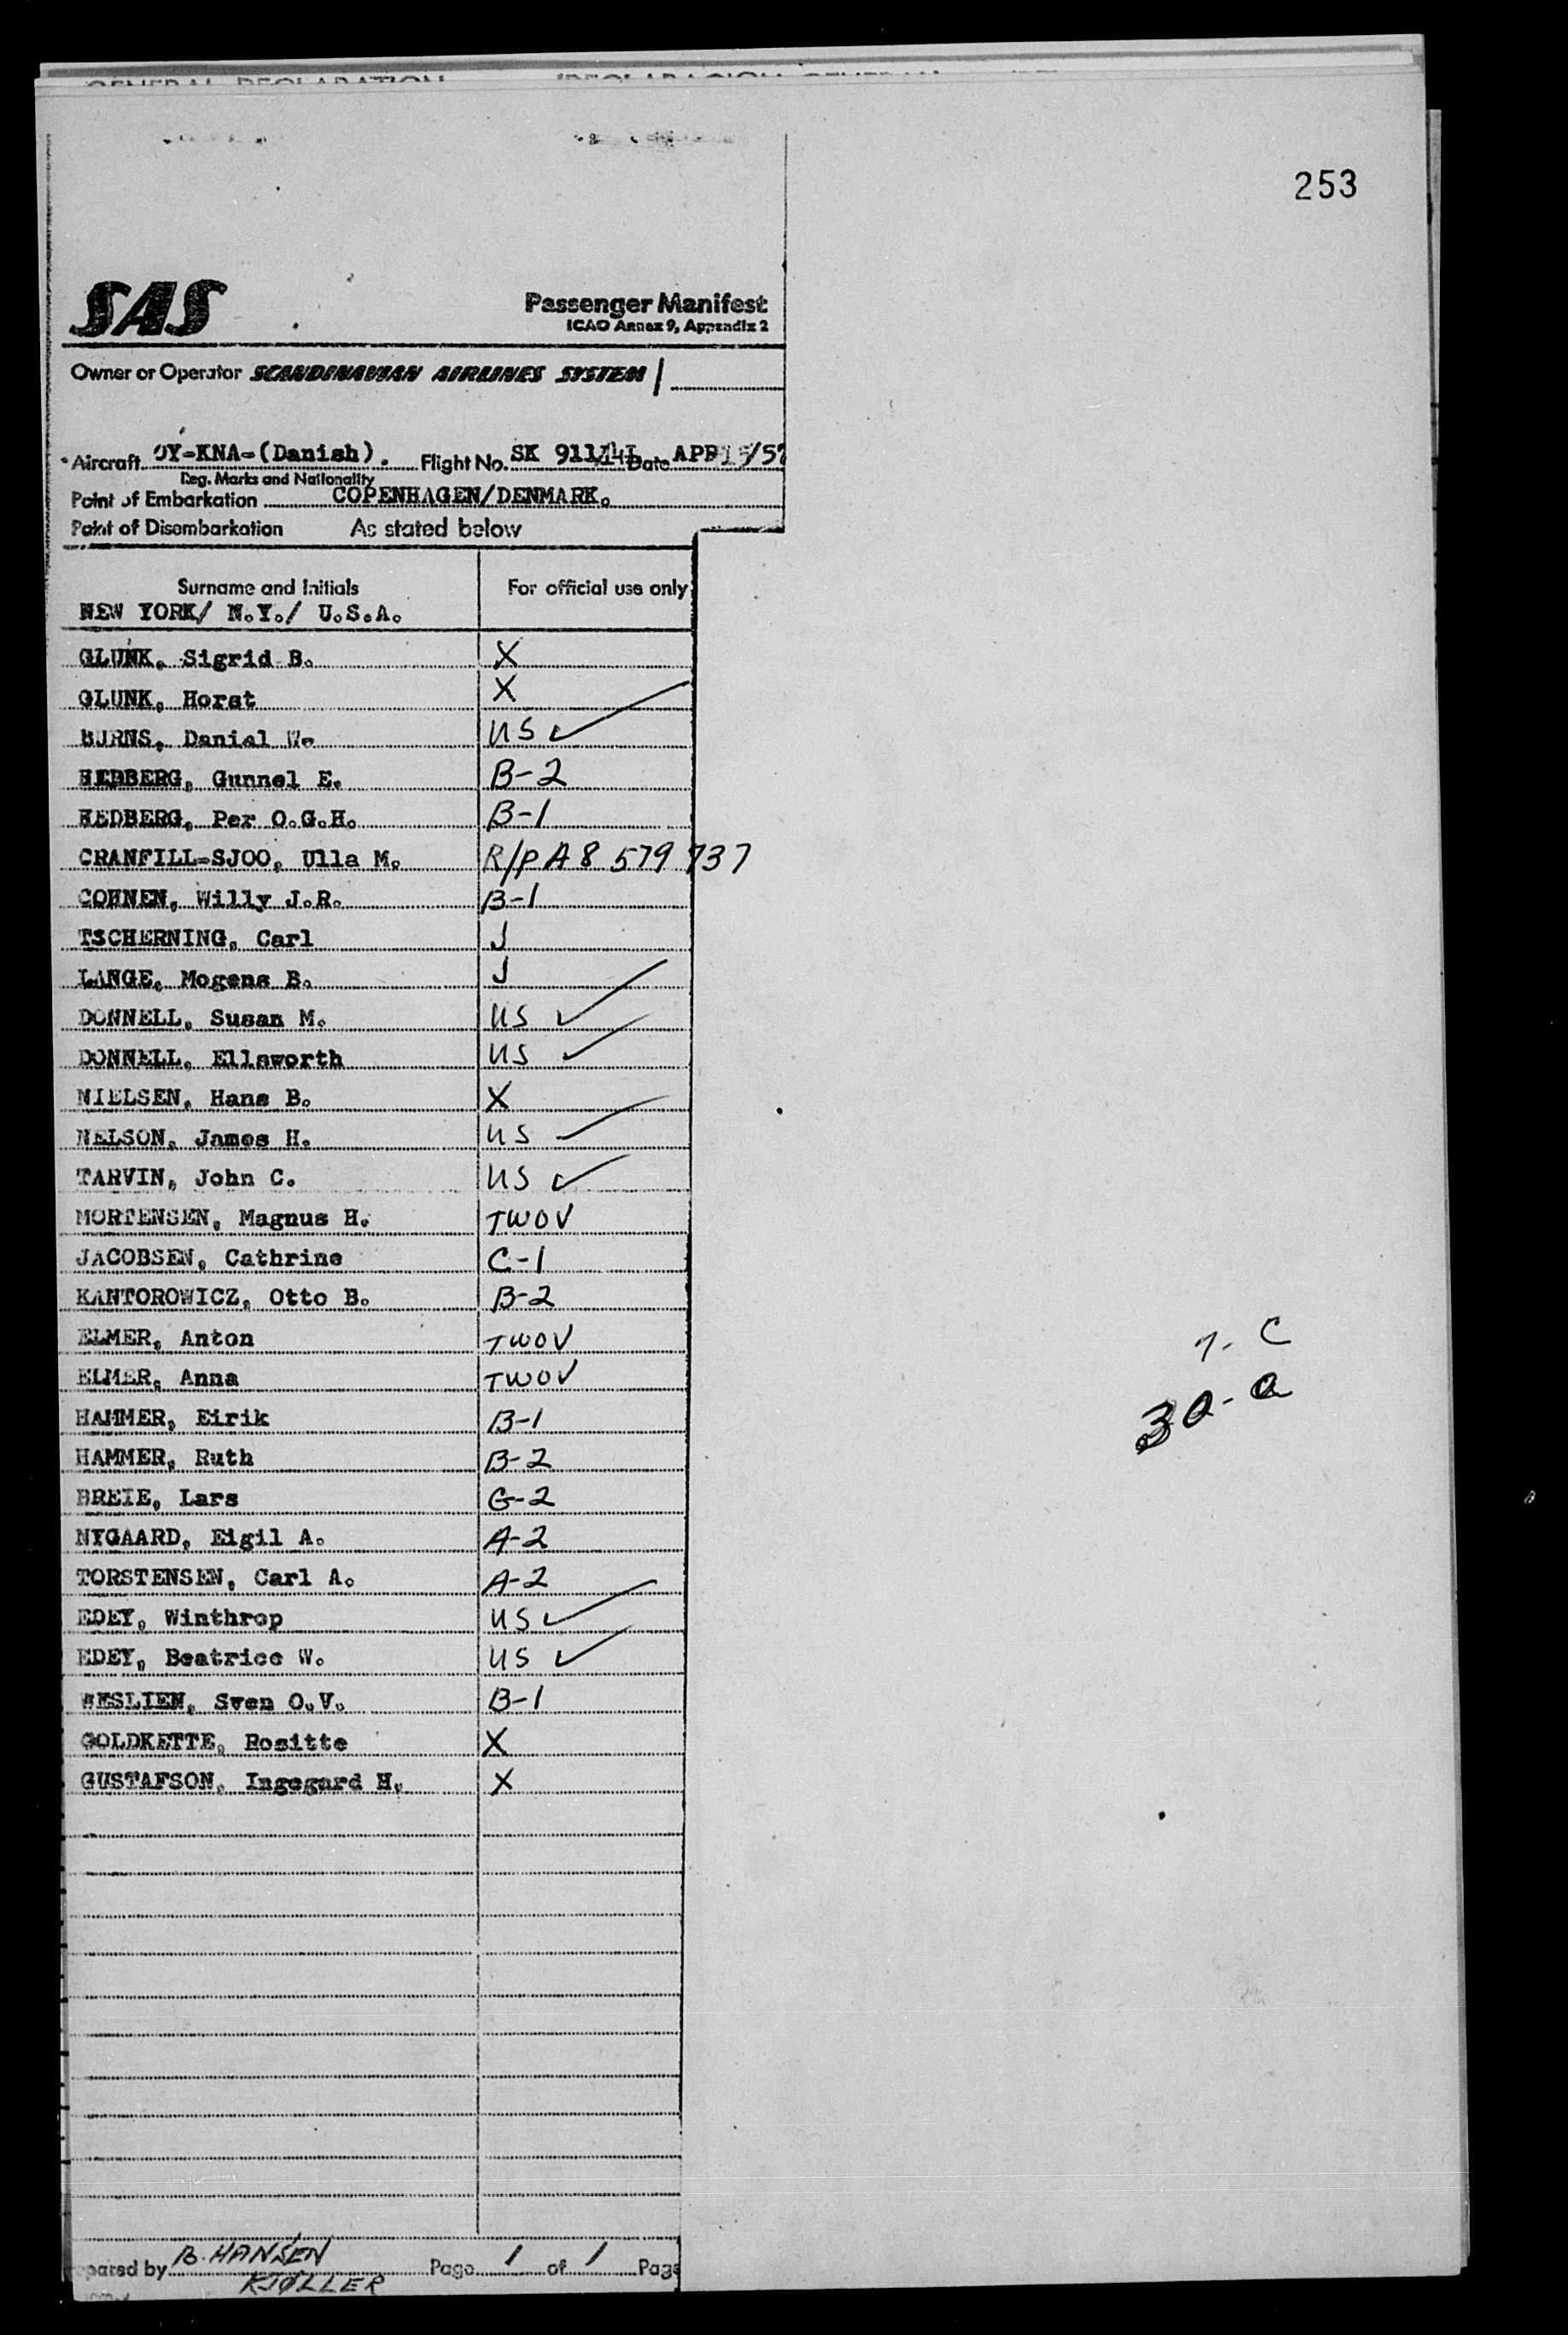 253
SAS
Passenger Manifest
ICAO Annex 9, Appendix 2
Owner or Operator SCANDINAVIAN AIRLINES SYSTEM
Aircraft OY-KNA-(Danish). Flight No. SK 911/14I Date APR 15/57
Reg. Marks and Nationality
Point of Embarkation COPENHAGEN/DENMARK.
Point of Disembarkation As stated below
Surname and Initials For official use only
NEW YORK/ N.Y./ U.S.A.
GLUNK, Sigrid B. X
GLUNK, Horst X
BURNS, Daniel W. US ✓
HEDBERG, Gunnel E. B-2
HEDBERG, Per O.G.H. B-1
CRANFILL-SJOO, Ulla M. R/P A8 579 737
COHNEN, Willy J.R. B-1
TSCHERNING, Carl J
LANGE, Mogens B. J
DONNELL, Susan M. US ✓
DONNELL, Ellsworth US ✓
NIELSEN, Hans B. X
NELSON, James H. US ✓
TARVIN, John C. US ✓
MORTENSEN, Magnus H. TWOV
JACOBSEN, Cathrine C-1
KANTOROWICZ, Otto B. B-2
ELMER, Anton TWOV
ELMER, Anna TWOV
HAMMER, Eirik B-1
HAMMER, Ruth B-2
BREIE, Lars G-2
NYGAARD, Eigil A. A-2
TORSTENSEN, Carl A. A-2
EDEY, Winthrop US ✓
EDEY, Beatrice W. US ✓
WESLIEN, Sven O.V. B-1
GOLDKETTE, Rositte X
GUSTAFSON, Ingegard H. X
7-C
30-a
pared by B. HANSEN Page 1 of 1 Page
KJØLLER